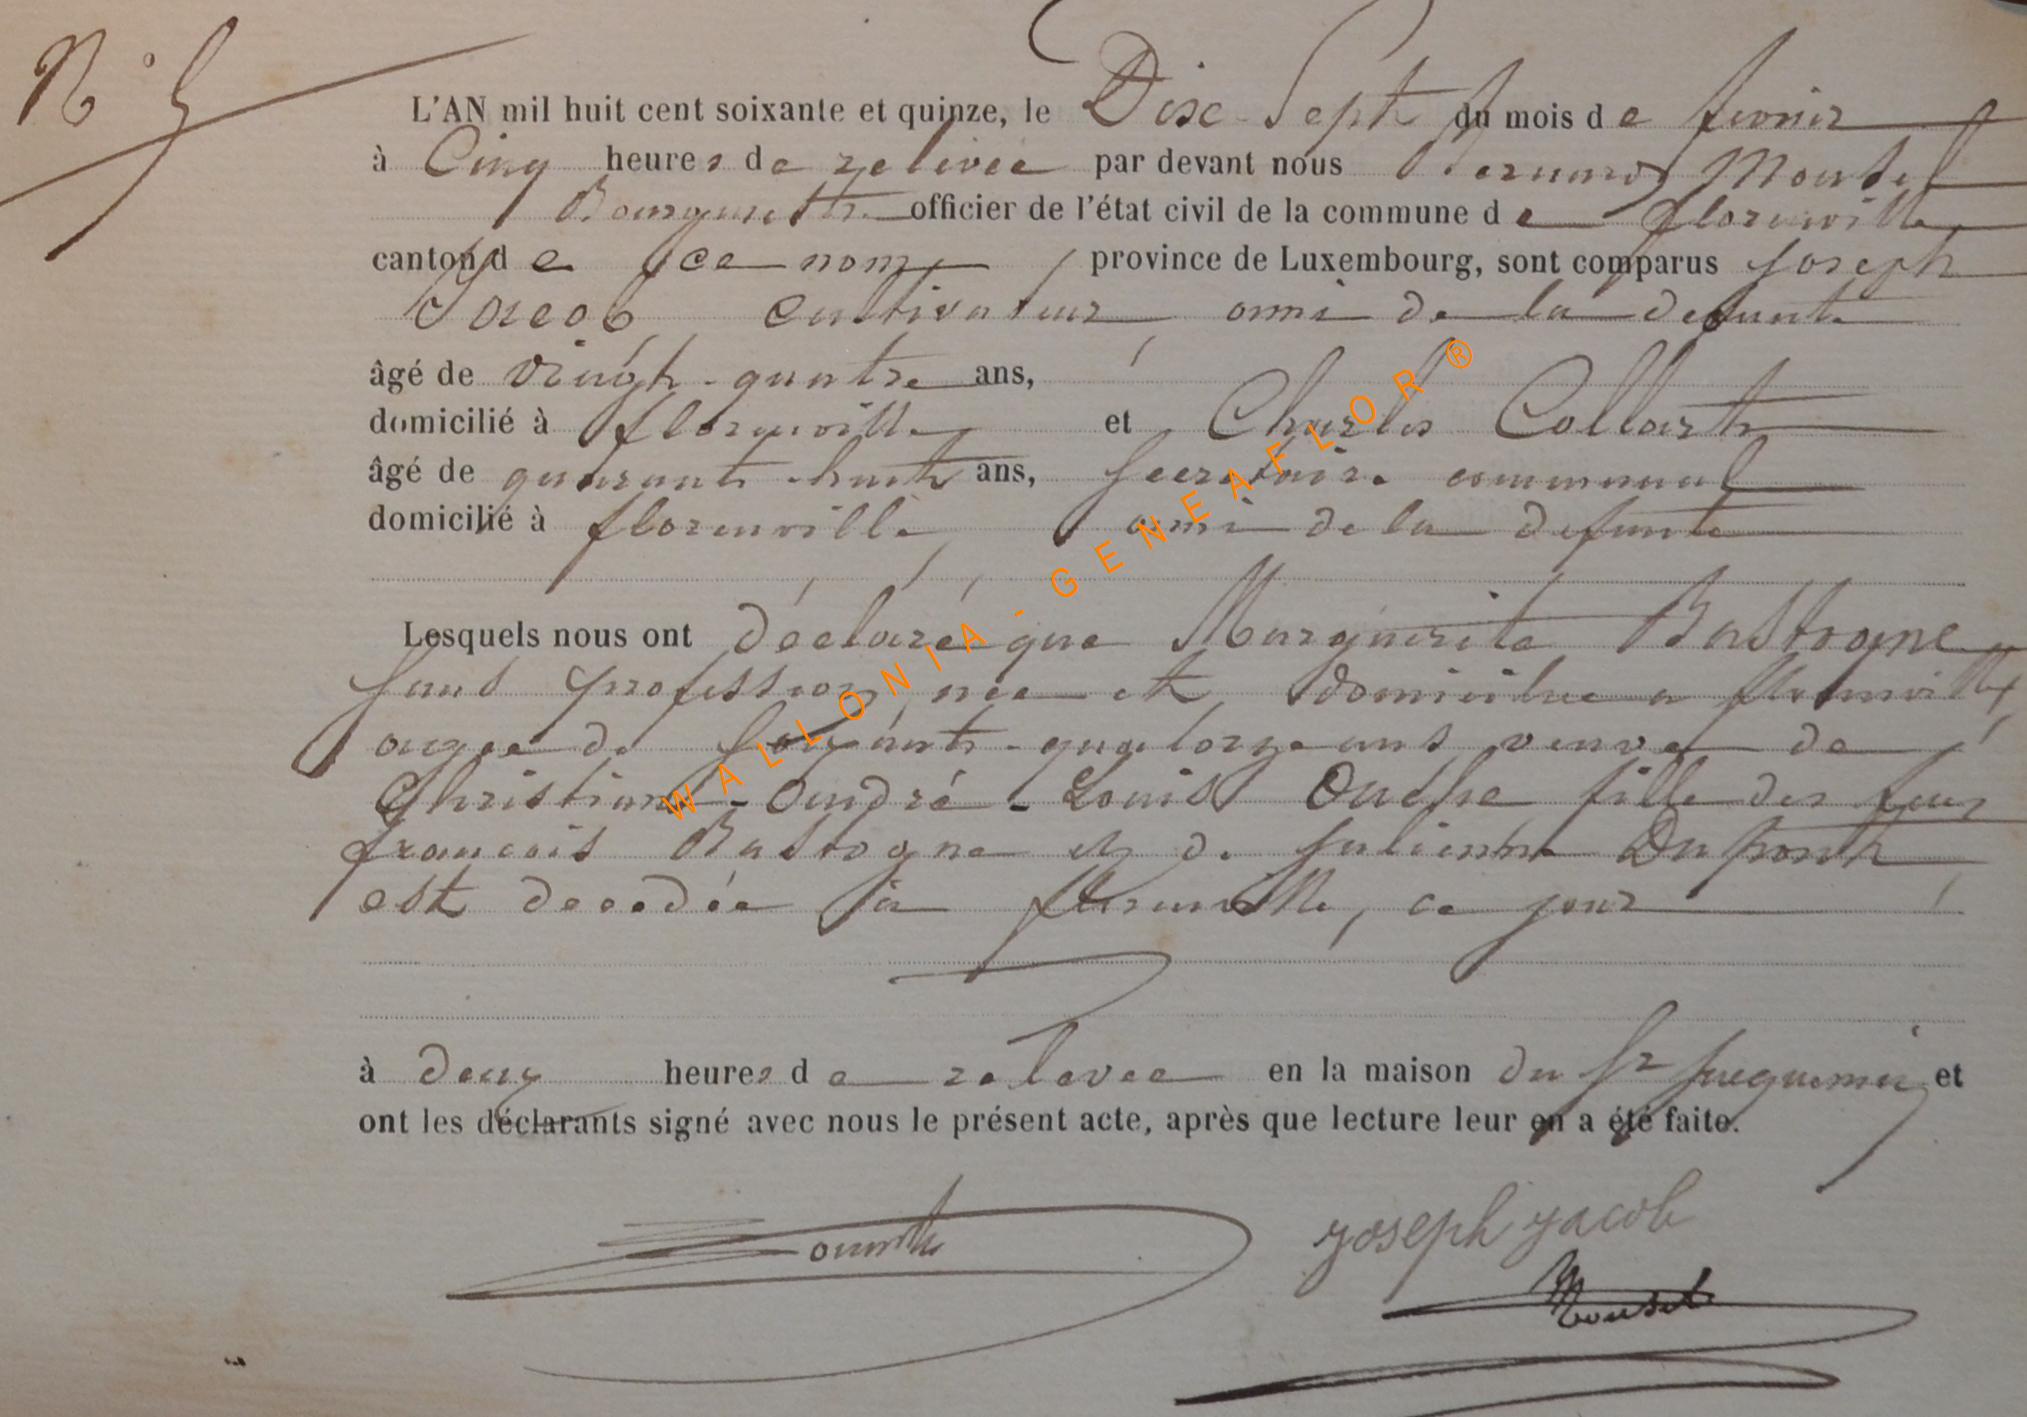 N° 5
L'AN mil huit cent soixante et quinze, le Dix-Sept du mois de fevrier
à Cinq heures de relevée par devant nous Fernand Mousel
Bourgmestre officier de l'état civil de la commune de florenville
canton de ce nom, province de Luxembourg, sont comparus Joseph
Jacob, Cultivateur, ami de la defunte
âgé de vingt-quatre ans,
domicilié à florenville et Charles Collart
âgé de quarante-huit ans, secretaire communal
domicilié à florenville, ami de la defunte
Lesquels nous ont déclaré que Marguerite Bastogne
sans profession, née et domiciliee a florenville,
agee de soixante-quatorze ans, veuve de
Christian-André-Louis fille des feus
françois Bastogne et de Julienne Dupont
est decedée à florenville, ce jour
à deux heures de relevee en la maison du Sr Jacquemin et
ont les déclarants signé avec nous le présent acte, après que lecture leur en a été faite.
Joseph Jacob
Mousel
WALLONIA-GENEAFLOR®